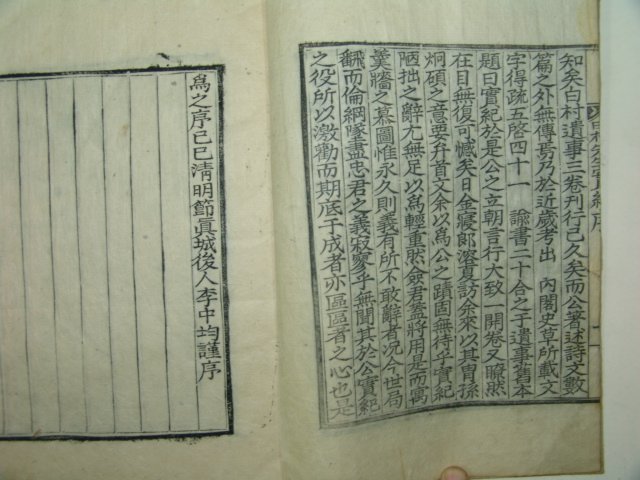 知矣白村遺事三卷刊行已久矣而公著述詩文數
篇之外無傳焉乃於近歲考出 內閣史草所載文
字得疏五啓四十一 諭書二十合之于遺事舊本
題曰實紀於是公之立朝言行大致一開卷又瞭然
在目無復可憾矣日金寢郎溶夏訪余來以其胄孫
炯碩之意要弁首文余以爲公之蹟固無待乎實紀
陋拙之辭尤無足以爲輕重然僉君蓋將用是而寓
羹牆之慕圖惟永久則義有所不敢辭者況今世局
飜而倫綱墜盡忠君之義寂寥乎無聞其於公實紀
之役所以激勸而期底于成者亦區區者之心也是
爲之序己巳淸明節眞城後人李中均謹序